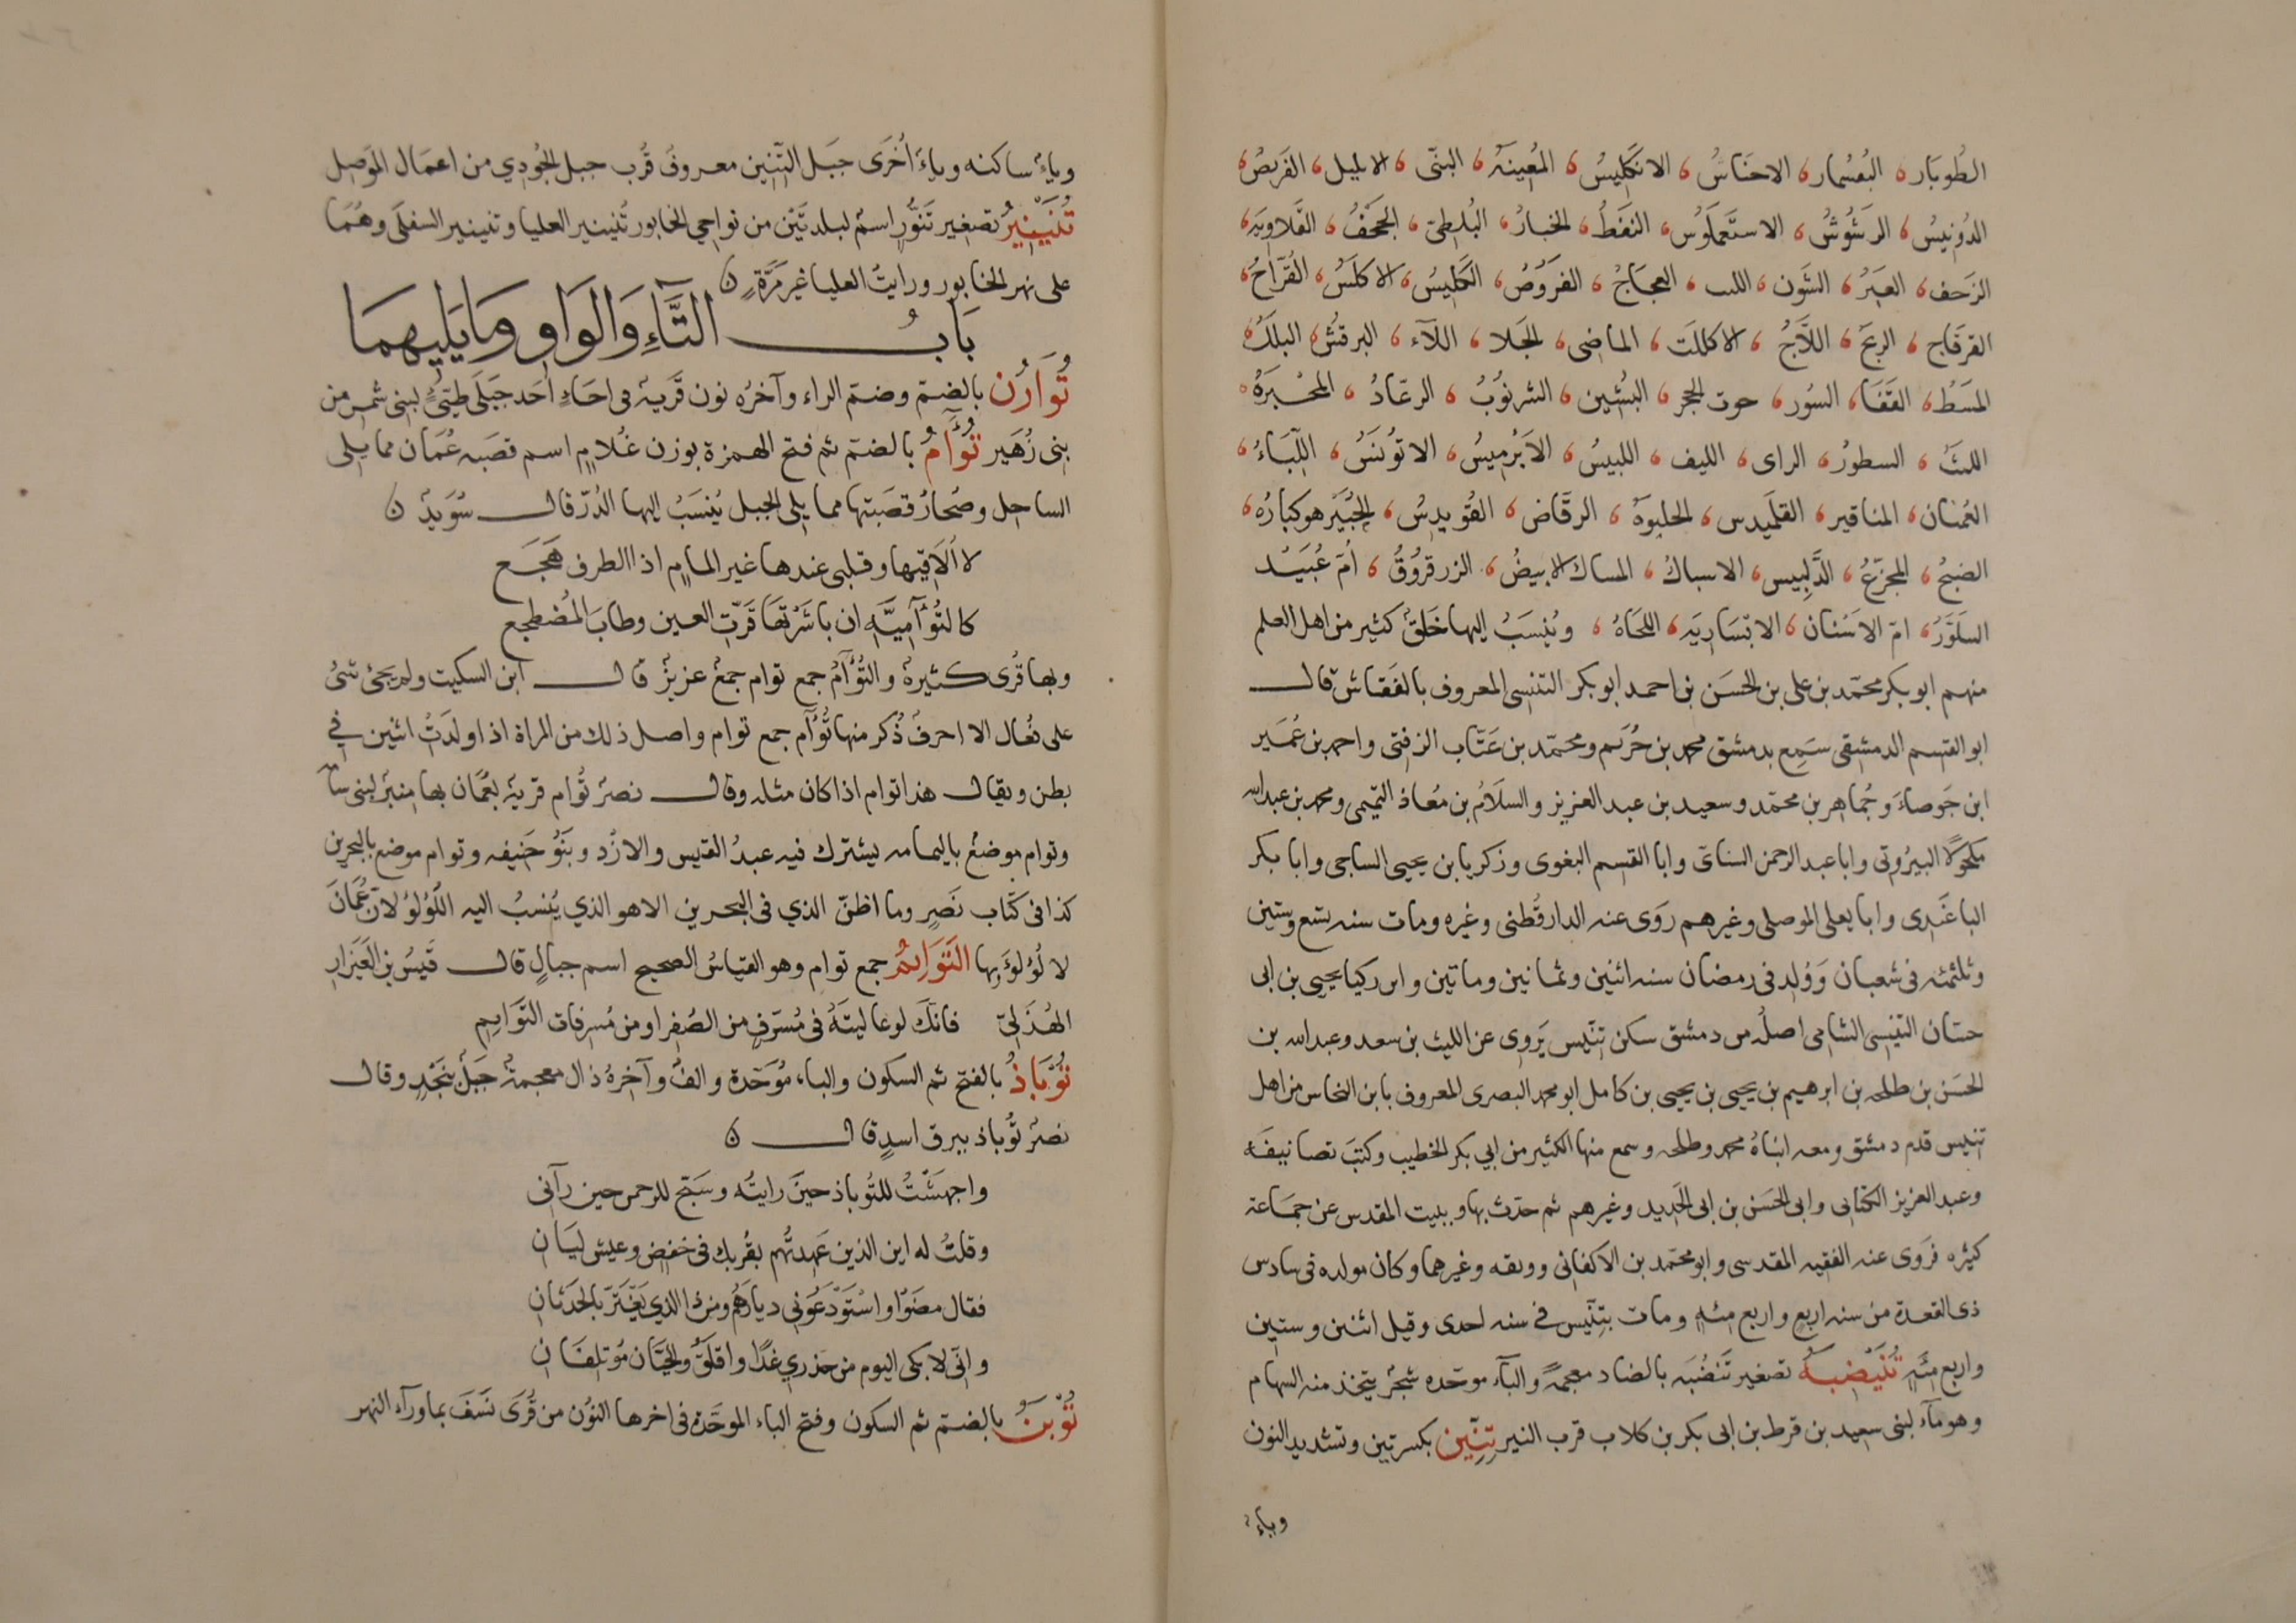 الطُوبَار، البُعسُمار، الاحنَاسُ، الانكَلِيسُ، المُعِينَهُ، البنّى، الابليل، الفَرِيصُ،
الدُونِيسُ، الرَشُوشُ، الاستَّعملَوُس، النفَطُ، الخبارُ، البُلطِىّ، الجحَفُ، القَلاوِيَه،
الزَحف، العيَرُ، التوُن، اللب، العجَاجُ، الفَروصُ، الكَلِيسُ، الاكلَسُ، القُرآحُ،
القرقَاج، الرِنجَ، اللَّاجُ، الاكلَت، الماضِى، الجَلا، اللآء، البرقشُ، البلَكُ،
المَسَطُ، القَفَا، السُور، حوت الحجر، البُشين، الشرنوُبُ، الرعّادُ، المخُبَرَهُ،
اللبَثُ، السطورُ، الراى، الليف، اللبيسُ، الابَرْمِيسُ، الاتوُنسَ، اللّبَاءُ،
العُمنان، المناقير، القلَميدس، الحلبوَهُ، الرقَاض، القُويدسُ، الجُبَيَر هو كبارُهُ،
الصبحُ، المجزّعُ، الدَّلِيس، الاسباكُ، المساك الابيضُ، الزرقرُوقُ، اُمّ عُبَيَـد
السلَوَّرُ، امّ الاسَنان، الانسَاريَه، اللحَاهُ، ويُنِسَبُ اليها خَلقٌ كثير من اهل العلم
منهم ابو بكر محمّد بن على بن الحسَن بن احمد ابو بكر التنسى المعروف بالنقاش قال
ابو القسم الدمشقى سَمِع بدمشق محمد بن خُرَيم ومحمّد بن عَتّاب الزفتى واحمد بن عُمَير
ابن جَوصاءَ وجُماهر بن محمّد وسعيد بن عبد العزيز والسلاَمُ بن مُعاذ التميمى ومحمد بن عبد الله
مكحولًا البيرُوتى وابا عبد الرحمن السناىّ وابا القسم البغوى وزكريا بن يحيى الساجى وابا بكر
الباغَندى وابا يعلى الموصلى وغيرهم رَوَى عنه الدارقُطنى وغيره ومات سنه تسع وستين
وثلثمئه فى شعبان وَوُلِد فى رمضان سنه اثنين وثمانين وماتين وابو زكريا يحيى بن ابى
حسّان التنيسى الشامى اصلُه من دمشق سكن تِنّيس يَروِى عن الليث بن سعد وعبد الله بن
الحسَن بن طلحه بن ابرهيم بن يحيى بن يحيى بن كامل ابو محمد البصرى المعروف بابن النحاس من اهل
تنيس قدم دمشق ومعه ابنَاهُ محمد وطلحه وسمع منها الكثير من ابى بكر الخطيب وكتبَ تصانيفَه
وعبد العزيز الكتانى وابى الحسَن بن ابى الحَديد وغيرهم ثم حدّث بها وببيت المقدس عن جمَاعة
كثيره فروَى عنه الفقيه المقدسى وابو محمّد بن الاكفانى ووثقه وغيرهما وكان مولده فى سادس
ذى القعدة من سنه اربع واربع مئهٍ ومات بتِنّيس فى سنه احدى وقيل اثنين وستين
واربع مئهِ تُنَيَضِبَهُ تصغير تَنضُبَه بالضاد معجمةً والبآء موحّده شَجرٌ يتخذ منه السهام
وهو مآء لبنى سعيد بن قرط بن ابى بكر بن كلاب قرب النير تِنِّين بكسرتين وتشديد النون
وياءٌ
وياءٌ ساكنه وياءٌ اُخرَى جبَل التنّين معروفٌ قُرب جبل الجُودِي من اعمَال المَوَصِل
تُنَيَنِيرُ تصغير تَنَّوُرٍ اسمٌ لبلدتَيْن من نواحي الخابور تُنينير العليا وتنينير السفلَى وهُمَا
على نهر الخابور ورايتُ العليا غير مَرَّةٍ ن
بَابُ التَّآءِ وَالوَاوِ وَمَا يَلِيهمَا
تُوَارُن بالضمّ وضمّ الراء وآخرُه نون قَريةٌ فى اجَاءٍ احَد جَبَلَى طيّئٍ لبنى شمر من
بنى زُهَير تُؤَامُ بالضمّ ثم فتح الهمزة بوزن غُلامٍ اسم قصَبه عُمَان مما يلى
الساحل وصُحارُ قصَبتها مما يلى الجبل يُنِسَبُ اليها الدُرّ قال سُوَيدٌ ن
لا الاَقيها وقلبى عندها غير المامٍ اذا الطرف هَجَع
كالتُؤآمِيَّهِ ان باشَرْتَهَا قَرّتِ العين وطابَ المُضطجع
وبها قُرى كثيرةٌ والتُؤَآمُ جمع توام جمعٌ عزيزٌ قال ابن السكيت ولم يجئ شئٌ
على فُعال الا احرفٌ ذُكر منها تُؤآم جمع توام واصل ذلك من المراة اذا ولدَتُ اثنين فى
بطن ويقال هذا توام اذا كان مثله وقال نصرٌ تُوام قريةٌ بعُمَان بها منبرٌ لبنى سآمه
وتوام موضعٌ باليمامه يشترك فيه عبدُ القيس والازُد وبَنُوَ حَنِيفه وتوام موضع بالبحرين
كذا فى كتاب نَصرٍ وما اظنّ الذي فى البحرين الا هو الذي يُنسبُ اليه اللُؤلؤُ لانّ عُمَانَ
لا لُؤلُؤَ بها التَوَايِمُ جمع توام وهو القياسُ الصحيح اسم جبالٍ قال قَيسُ بن العَيَزارِ
الهُذَلِىّ فانكَ لو عاليتَهُ فى مُشَرفٍ من الصُفرِ او من مُشرِفات التوَايِمِ
تُوَباذُ بالفتح ثم السكون والباء مُوَحّدة والفٌ وآخرهُ ذال معجمةٌ جبَلٌ بنَجدٍ وقال
نصرٌ توُباذ ببرق اسدٍ قال ن
واجهشَتُ للتوُباذ حينَ رايتُه وسَبّح للرحمن حين رآنى
وقلتُ له اين الذين عَهِدتُهم بقُربك فى خفض وعيش ليَان
فقال مضَوْا واسْتَوَدَعُونى ديارَهُم ومن ذا الذي يَغتَرّ بالحَدَثانِ
وانّى لابكى اليوم من حذري غدًا واقلَقُ والحيّان مُوتلِفَانِ
تُوْبَنُ بالضمّ ثم السكون وفتح الباء الموحّدة فى اخرها النوُن من قُرَى نَسَفَ بماورآء النهر